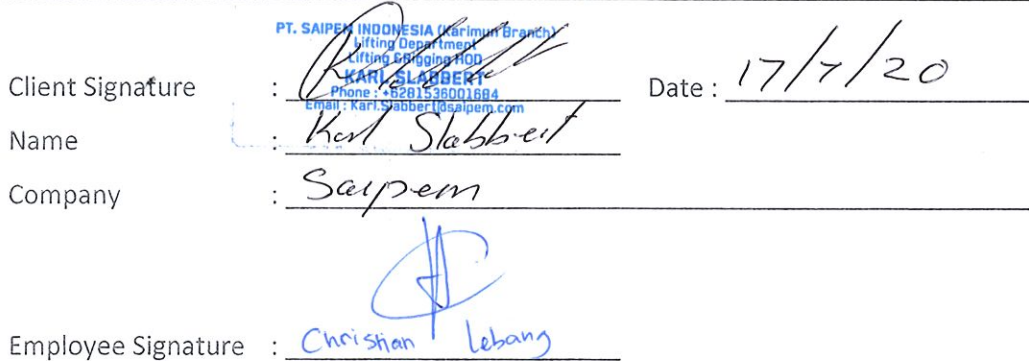 PT. SAIPEM INDONESIA (Karimun Branch)
Lifting Department
Lifting & Rigging HOD
KARL SLABBERT
Phone : +6281536001684
Email : Karl.Slabbert@saipem.com
Client Signature :
Date : 17/7/20
Name : Karl Slabbert
Company : Saipem
Employee Signature : Christian Lebang